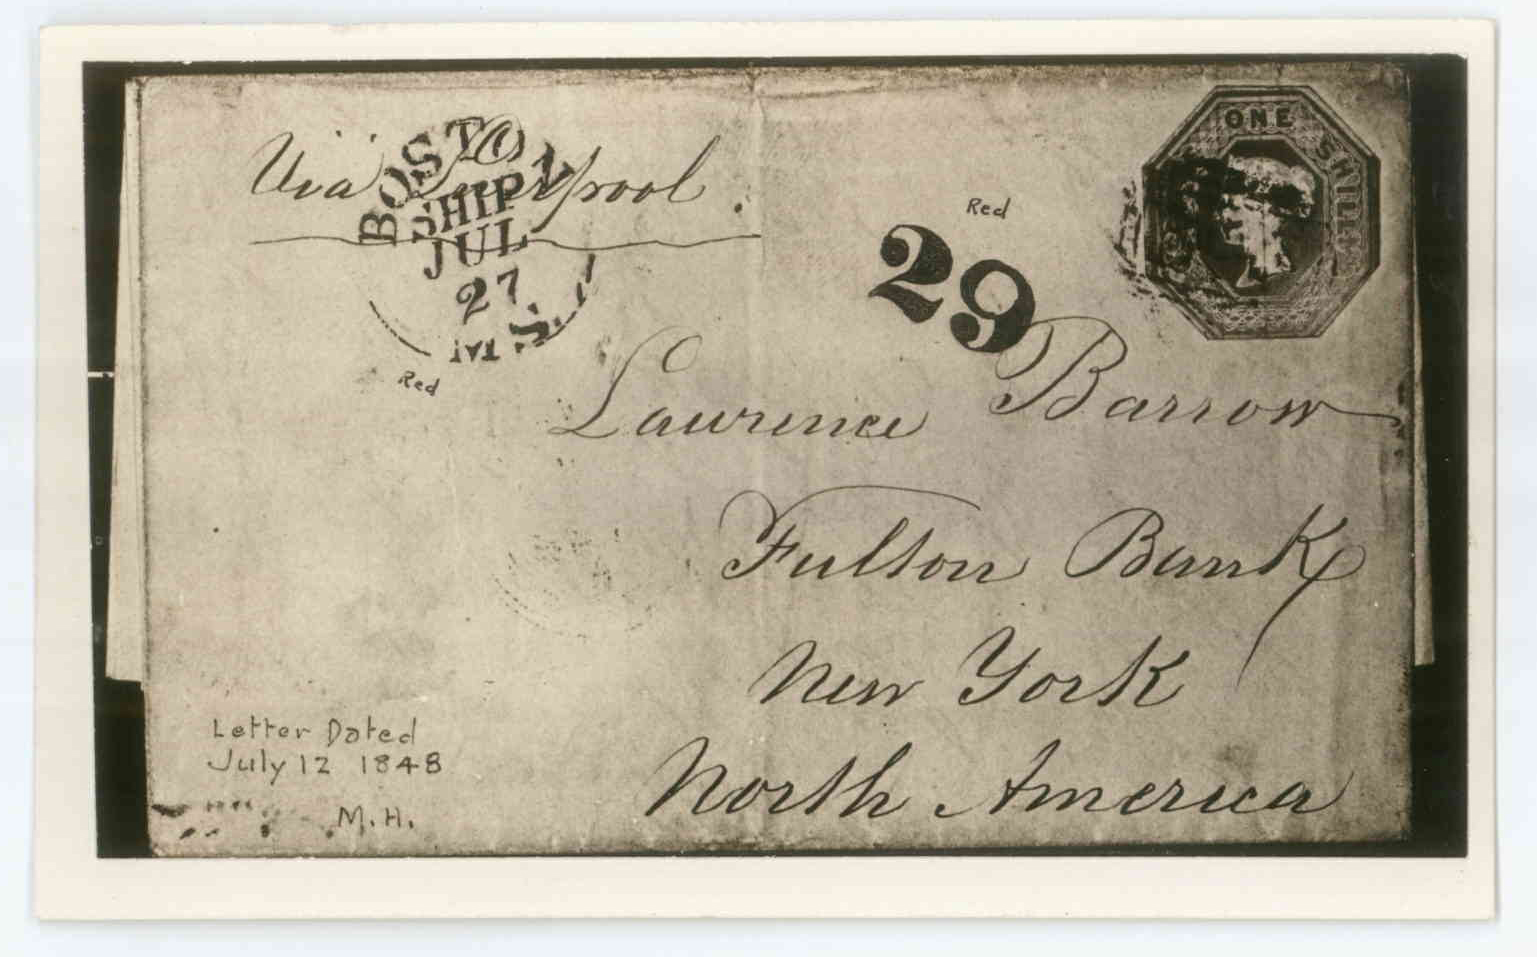 Via Liverpool.
BOSTON
SHIP
JUL
27
MS.
Red
Red
29
ONE SHILLING
Laurence Barrow
Fulton Bank
New York
North America
Letter Dated
July 12 1848
M.H.